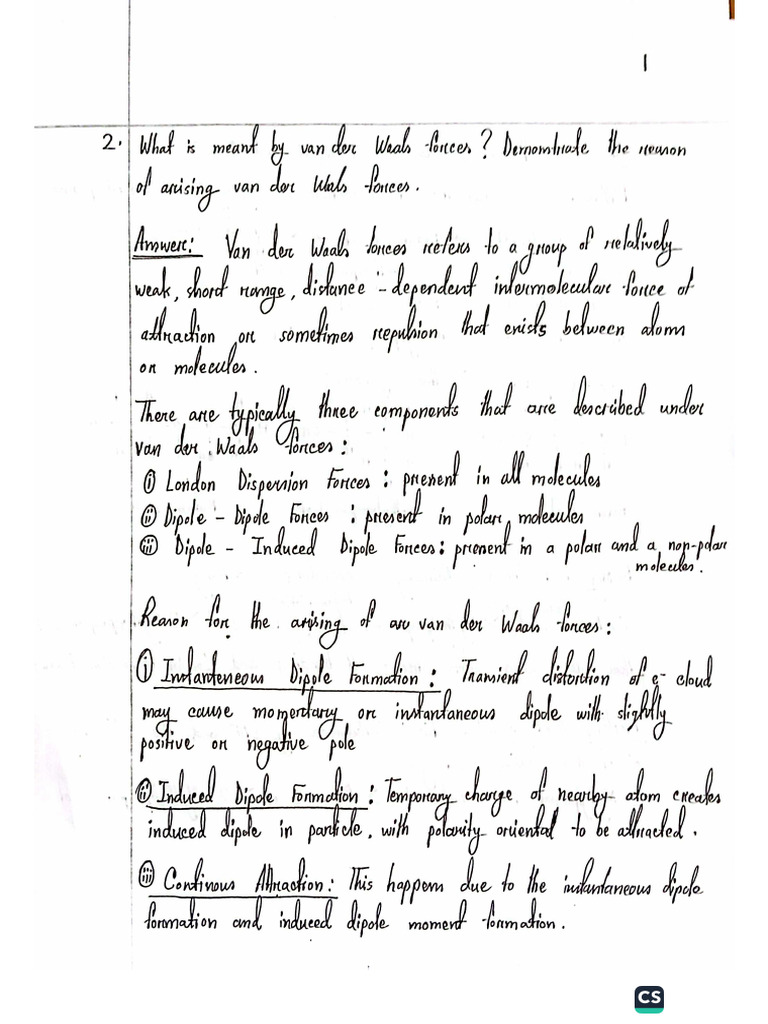 1
2. What is meant by van der Waals forces? Demonstrate the reason
of arising van der Wals forces.
Answer: Van der Waals forces refers to a group of relatively
weak, short range, distance - dependent intermolecular force of
attraction or sometimes repulsion that exists between atoms
or molecules.
There are typically three components that are described under
van der Waals forces:
(i) London Dispersion Forces : present in all molecules
(ii) Dipole - Dipole Forces : present in polar molecules
(iii) Dipole - Induced Dipole Forces : present in a polar and a non-polar
molecules.
Reason for the arising of van der Waals forces:
(i) Instanteneous Dipole Formation : Transient distortion of e- cloud
may cause momentary or instantaneous dipole with slightly
positive or negative pole
(ii) Induced Dipole Formation : Temporary charge of nearby atom creates
induced dipole in particle, with polarity oriental to be attracted.
(iii) Continous Attraction : This happens due to the instantaneous dipole
formation and induced dipole moment formation.
CS